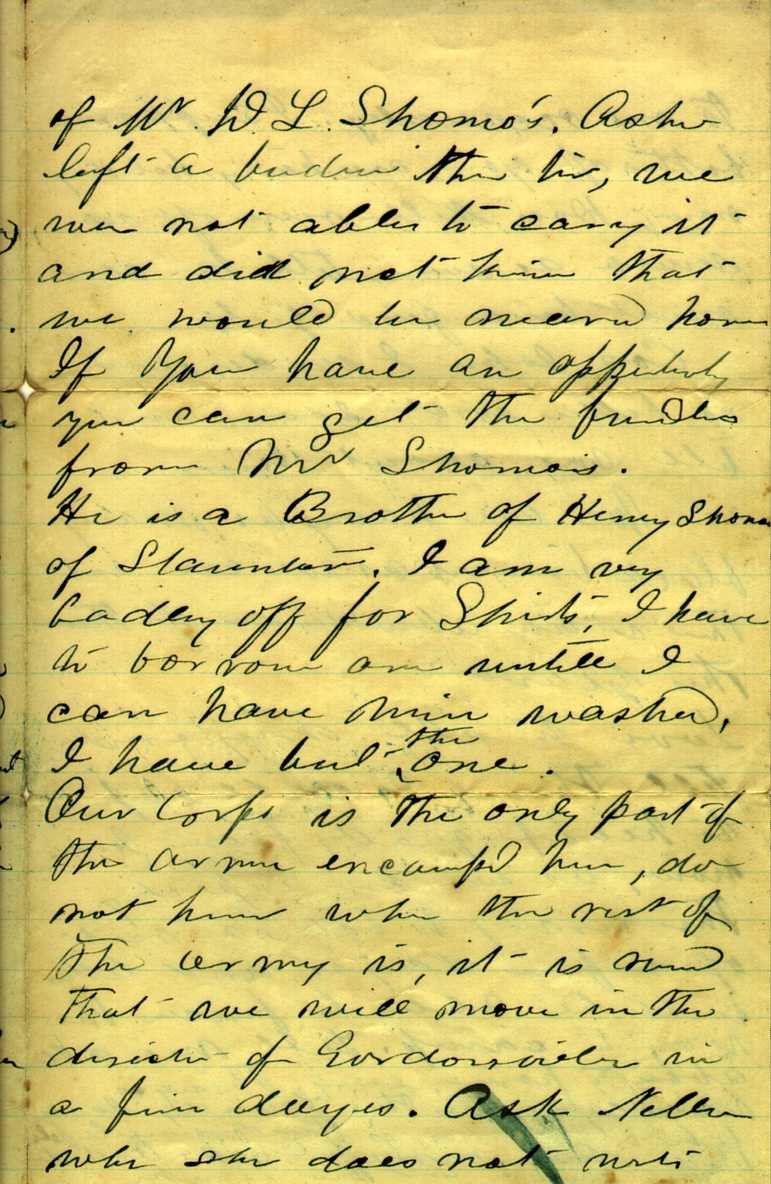 of Mr. W. L. Shomo's. Asher
left a bundle ther too, we
wer not abler to cary it
and did not know that
we would be nearer home
If You have an oppertunity
you can get the bundles
from Mr Shomo's.
He is a Brother of Henry Shomo
of Staunton. I am very
badley off for Shirts, I have
to borrow one untill I
can have mine washed,
I have but the one.
Our Corps is the only part of
the armee encamped here, do
not know wher the rest of
the army is, it is rumored
that we will move in the
direction of Gordonsville in
a few dayes. Ask Nellie
why she does not write